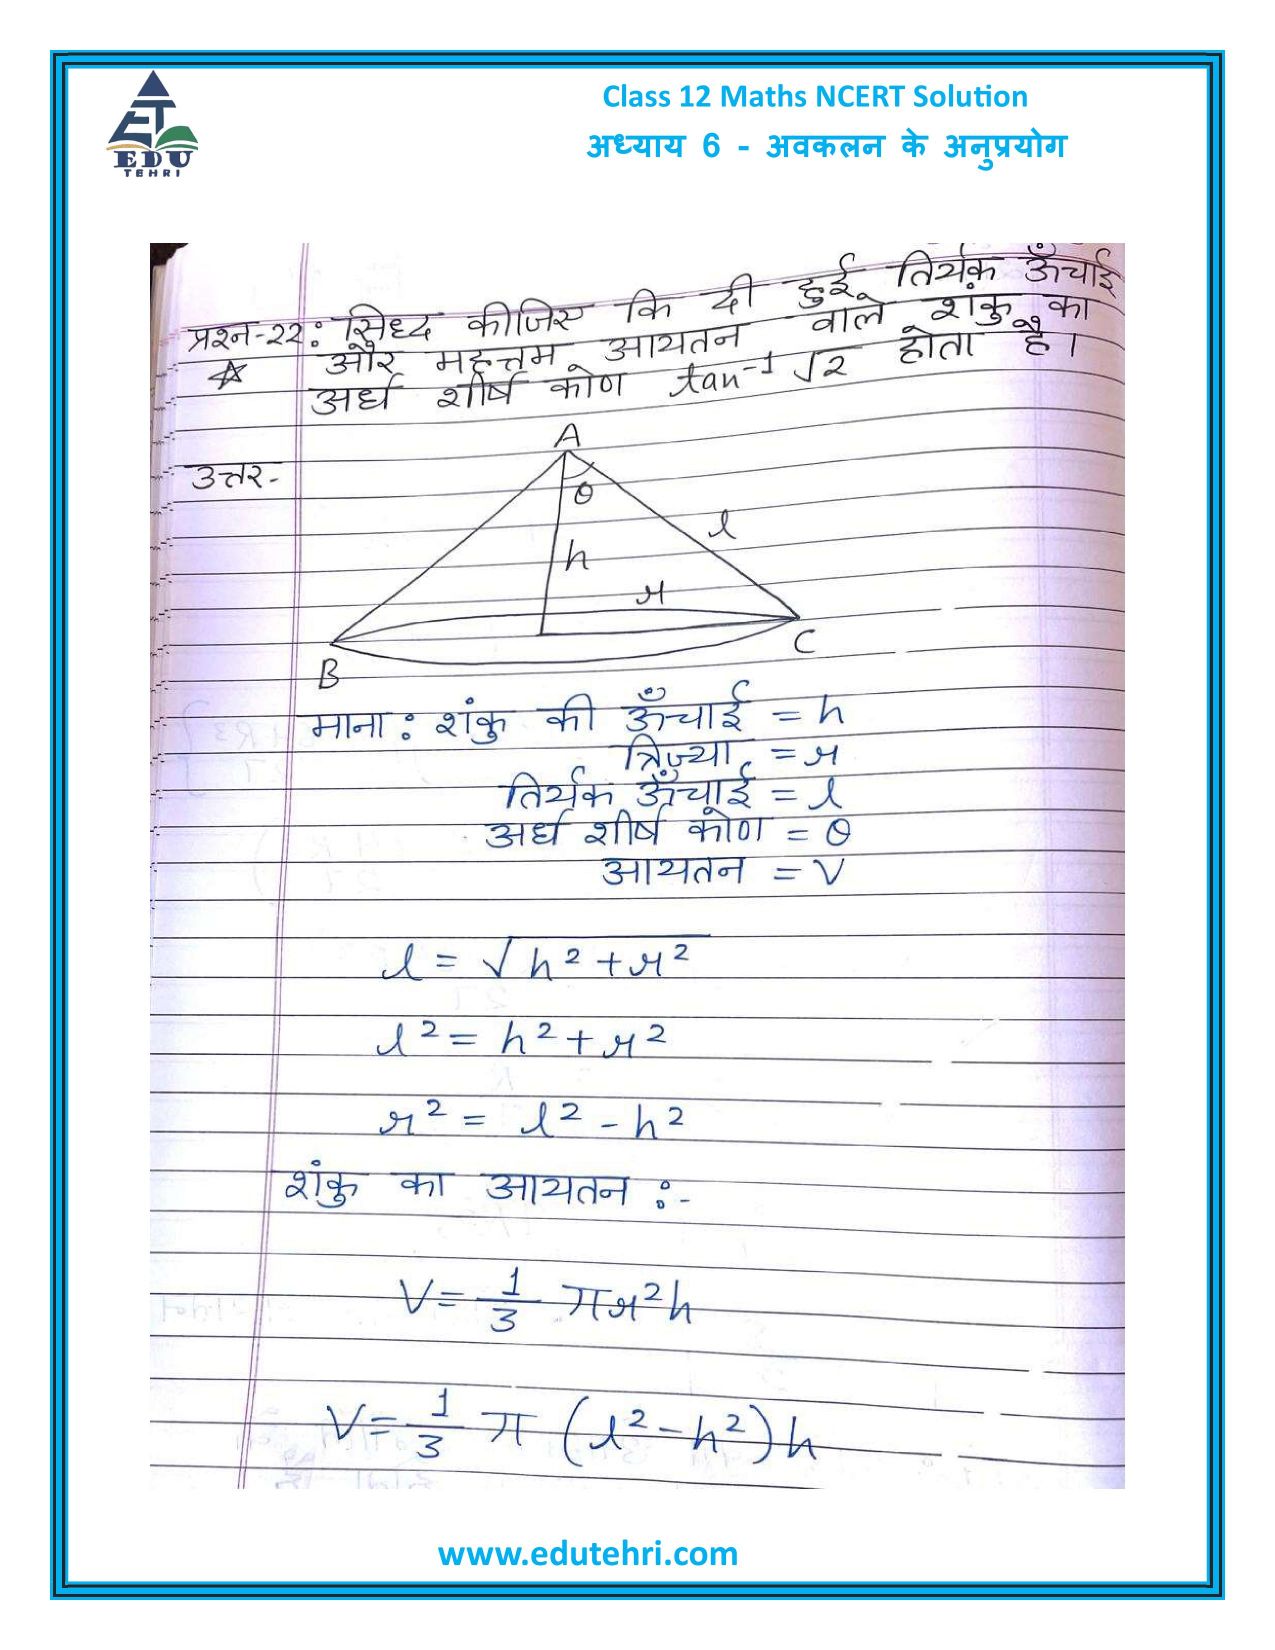 ET
EDU
TEHRI
Class 12 Maths NCERT Solution
अध्याय 6 - अवकलन के अनुप्रयोग
प्रश्न-22: सिध्द कीजिए कि दी हुई तिर्यक ऊँचाई
और महत्तम आयतन वाले शंकु का
अर्ध शीर्ष कोण tan⁻¹ √2 होता है।
उत्तर-
A
θ
l
h
r
B
C
माना: शंकु की ऊँचाई = h
त्रिज्या = r
तिर्यक ऊँचाई = l
अर्ध शीर्ष कोण = θ
आयतन = V
l = √h² + r²
l² = h² + r²
r² = l² - h²
शंकु का आयतन :-
V = 1/3 πr²h
V = 1/3 π (l² - h²)h
www.edutehri.com